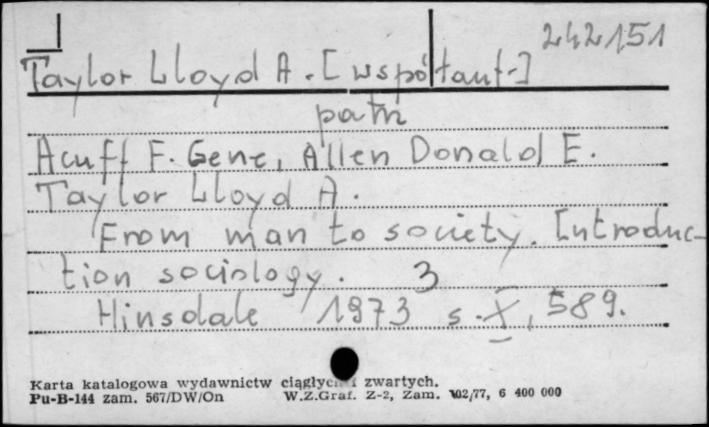 242151
Taylor Lloyd A. [współaut.]
patrz
Acuff F. Gene, Allen Donald E.
Taylor Lloyd A.
From man to society. Introduc-
tion sociology. 3
Hinsdale 1973 s. X, 589.
Karta katalogowa wydawnictw ciągłych i zwartych.
Pu-B-144 zam. 567/DW/On W.Z.Graf. Z-2, Zam. 102/77, 6 400 000